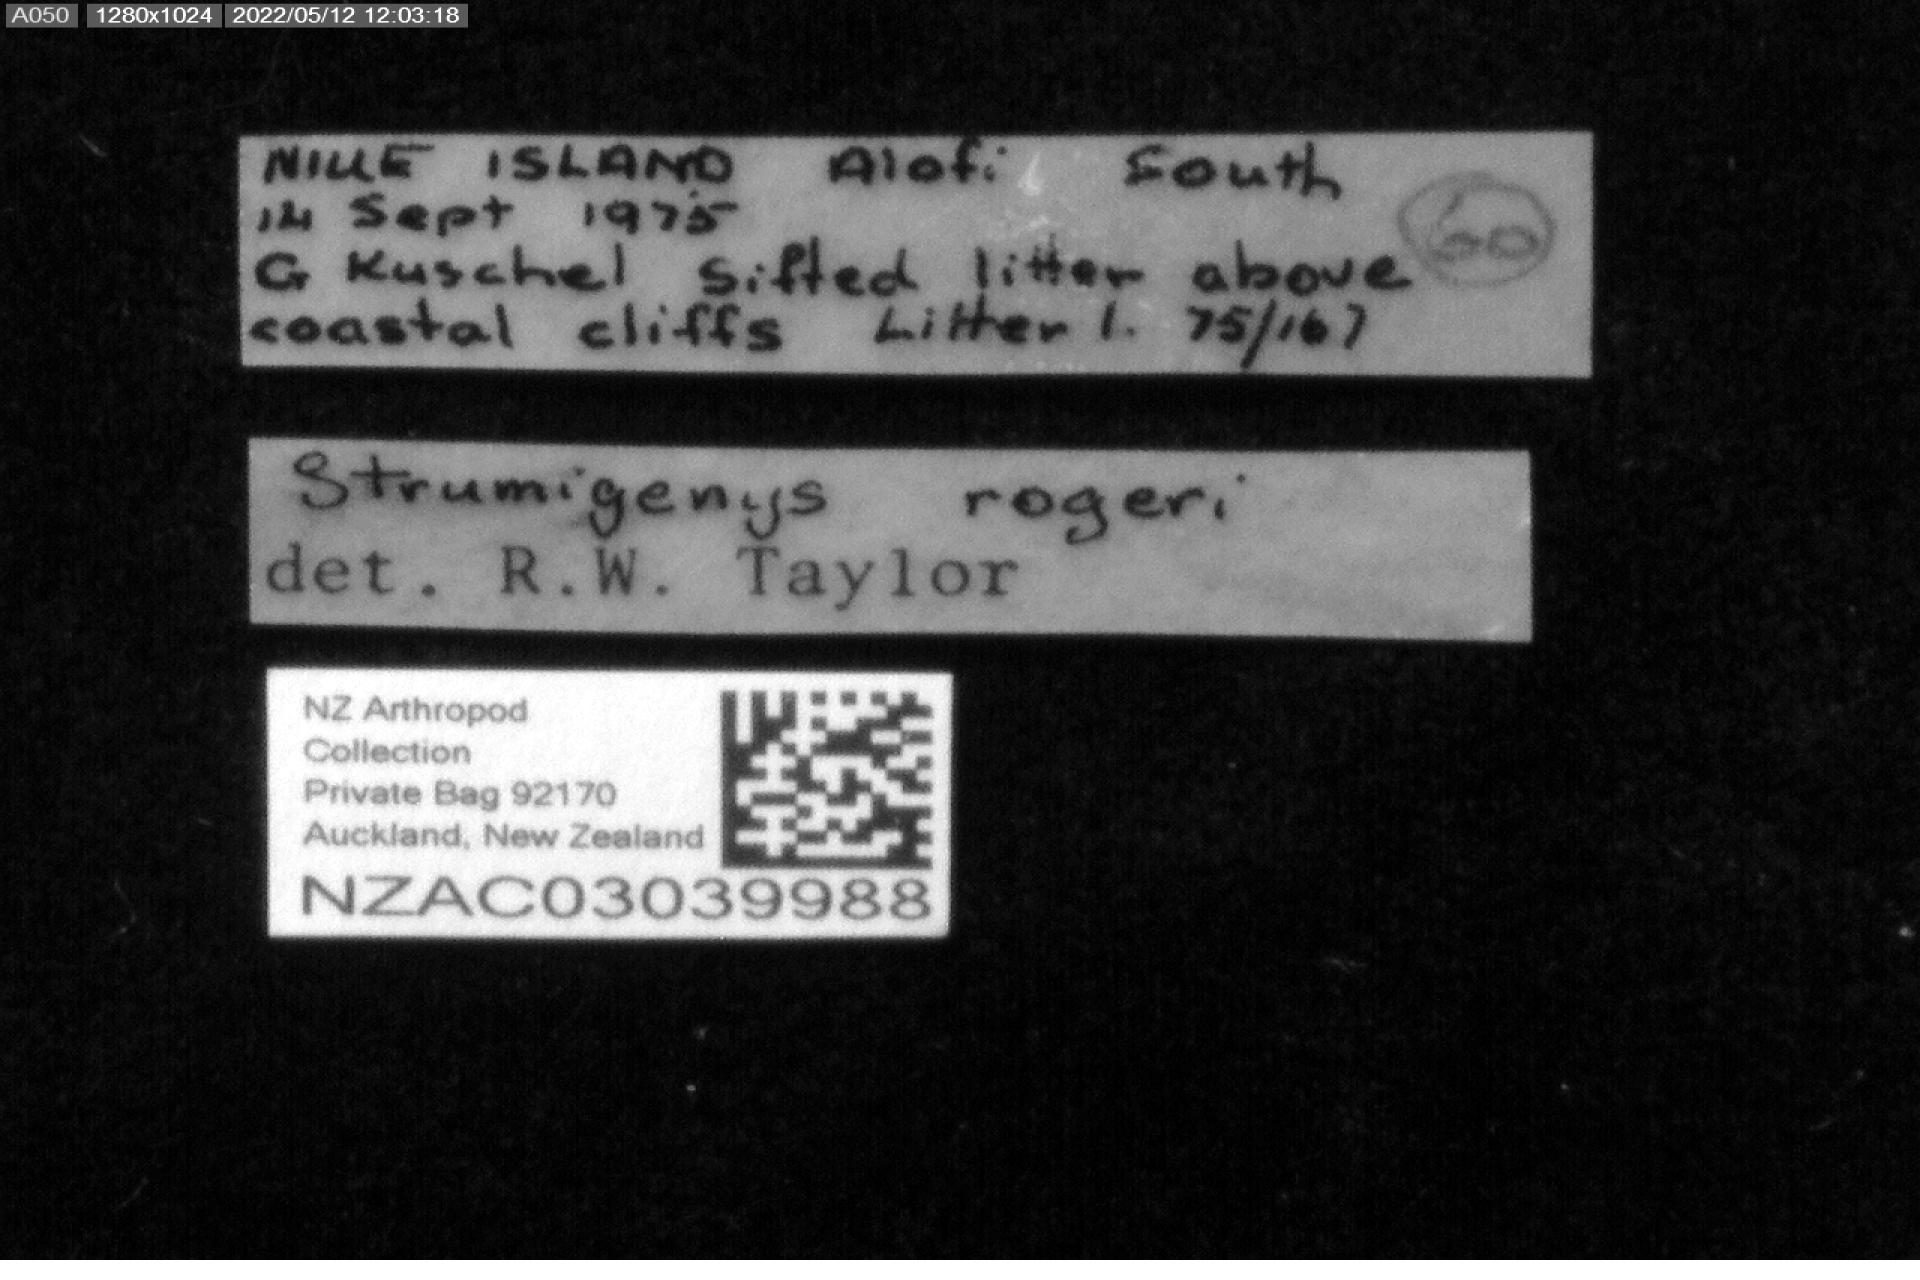 A050 1280x1024 2022/05/12 12:03:18
NIUE ISLAND Alofi South
14 Sept 1975
G Kuschel Sifted litter above
coastal cliffs Litter 1. 75/167
60
Strumigenys rogeri
det. R.W. Taylor
NZ Arthropod
Collection
Private Bag 92170
Auckland, New Zealand
NZAC03039988